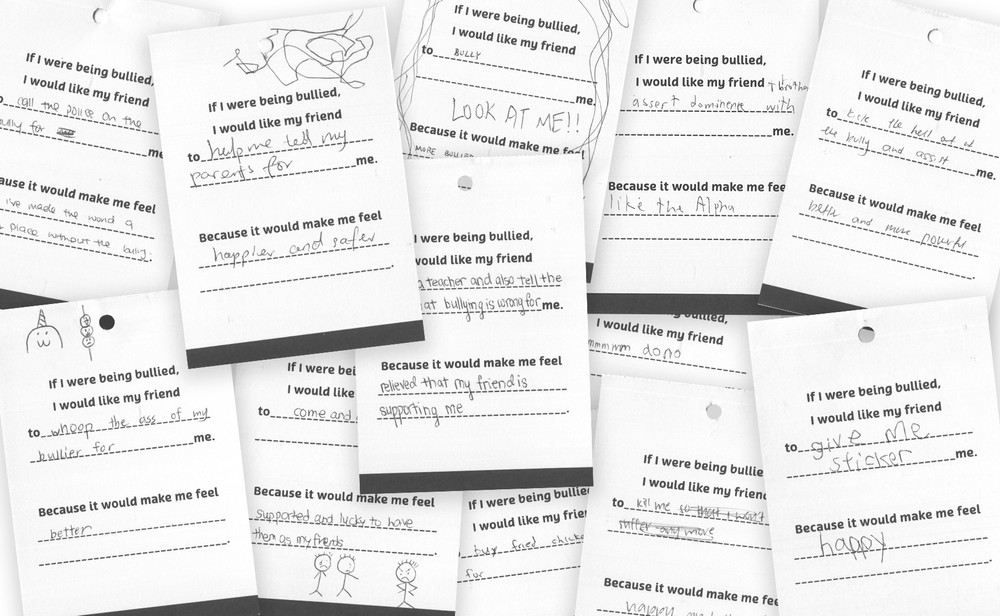 If I were being bullied,
I would like my friend
call the police on the
bully for
me.
Because it would make me feel
I've made the world a
place without the bully.
If I were being bullied,
I would like my friend
to help me tell my
parents for me.
Because it would make me feel
happier and safer
If I were being bullied,
I would like my friend
to BULLY
me.
LOOK AT ME!!
Because it would make me feel
MORE
If I were being bullied,
I would like my friend
assert dominence with
me.
Because it would make me feel
like the Alpha
If I were being bullied,
I would like my friend
to kick the hell out of
the bully and assist
me.
Because it would make me feel
better and more powerful
If I were being bullied,
I would like my friend
to whoop the ass of my
bullier for me.
Because it would make me feel
better
If I were being bullied,
I would like
to come and
Because it would make me feel
supported and lucky to have
them as my friends
I were being bullied,
would like my friend
a teacher and also tell the
bullying is wrong for me.
Because it would make me feel
relieved that my friend is
supporting me
bullied,
I would like my friend
dono
If I were being bullied
I would like my
fried
for
If I were being bullied
I would like my friend
to kill me so that I won't
suffer any more
Because it would make me feel
happy
If I were being bullied,
I would like my friend
to give Me
sticker me.
Because it would make me feel
happy